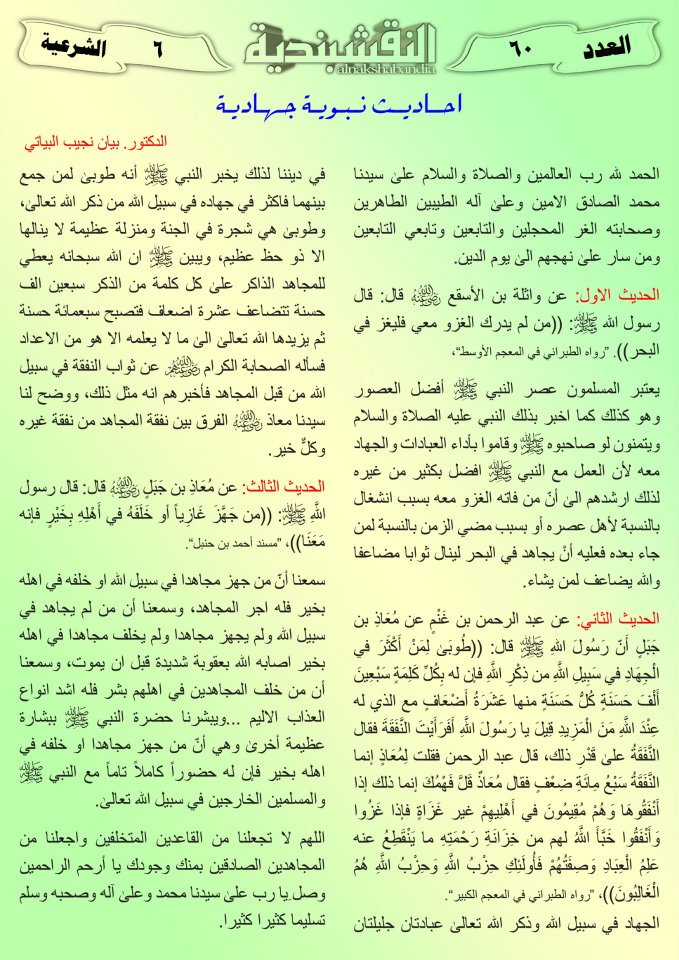 العدد
٦٠
النقشبندية
alnakshabandia
٦
الشرعية
احاديث نبوية جهادية
الدكتور. بيان نجيب البياتي
الحمد لله رب العالمين والصلاة والسلام علىٰ سيدنا
محمد الصادق الامين وعلىٰ آله الطيبين الطاهرين
وصحابته الغر المحجلين والتابعين وتابعي التابعين
ومن سار علىٰ نهجهم الىٰ يوم الدين.
الحديث الاول: عن واثلة بن الأسقع رضي الله عنه قال: قال
رسول الله ﷺ: ((من لم يدرك الغزو معي فليغز في
البحر)). "رواه الطبراني في المعجم الأوسط"،
يعتبر المسلمون عصر النبي ﷺ أفضل العصور
وهو كذلك كما اخبر بذلك النبي عليه الصلاة والسلام
ويتمنون لو صاحبوه ﷺ وقاموا بأداء العبادات والجهاد
معه لأن العمل مع النبي ﷺ افضل بكثير من غيره
لذلك ارشدهم الىٰ أنّ من فاته الغزو معه بسبب انشغال
بالنسبة لأهل عصره أو بسبب مضي الزمن بالنسبة لمن
جاء بعده فعليه أنْ يجاهد في البحر لينال ثوابا مضاعفا
والله يضاعف لمن يشاء.
الحديث الثاني: عن عبد الرحمن بن غَنْمٍ عن مُعَاذِ بن
جَبَلٍ أَنَّ رَسُولَ اللهِ ﷺ قال: ((طُوبَىٰ لِمَنْ أَكْثَرَ في
الْجِهَادِ في سَبِيلِ اللَّهِ من ذِكْرِ اللَّهِ فإن له بِكُلِّ كَلِمَةٍ سَبْعِينَ
أَلْفَ حَسَنَةٍ كُلُّ حَسَنَةٍ منها عَشَرَةُ أَضْعَافٍ مع الذي له
عِنْدَ اللَّهِ مَنَ الْمَزِيدِ قِيلَ يا رَسُولَ اللَّهِ أَفَرَأَيْتَ النَّفَقَةَ فقال
النَّفَقَةُ علىٰ قَدْرِ ذلك، قال عبد الرحمن فقلت لِمُعَاذٍ إنما
النَّفَقَةُ سَبْعُ مِائَةِ ضِعْفٍ فقال مُعَاذٌ قَلَّ فَهْمُكَ إنما ذلك إذا
أَنْفَقُوهَا وَهُمْ مُقِيمُونَ في أَهْلِيهِمْ غير غَزَاةٍ فإذا غَزُوا
وَأَنْفَقُوا خَبَّأَ اللَّهُ لهم من خِزَانَةِ رَحْمَتِهِ ما يَنْقَطِعُ عنه
عَلِمُ الْعِبَادِ وَصِفَتُهُمْ فَأُولَئِكَ حِزْبُ اللَّهِ وَحِزْبُ اللَّهِ هُمُ
الْغَالِبُونَ))، "رواه الطبراني في المعجم الكبير".
الجهاد في سبيل الله وذكر الله تعالىٰ عبادتان جليلتان
في ديننا لذلك يخبر النبي ﷺ أنه طوبىٰ لمن جمع
بينهما فاكثر في جهاده في سبيل الله من ذكر الله تعالىٰ،
وطوبىٰ هي شجرة في الجنة ومنزلة عظيمة لا ينالها
الا ذو حظ عظيم، ويبين ﷺ ان الله سبحانه يعطي
للمجاهد الذاكر علىٰ كل كلمة من الذكر سبعين الف
حسنة تتضاعف عشرة اضعاف فتصبح سبعمائة حسنة
ثم يزيدها الله تعالىٰ الىٰ ما لا يعلمه الا هو من الاعداد
فسأله الصحابة الكرام رضي الله عنهم عن ثواب النفقة في سبيل
الله من قبل المجاهد فأخبرهم انه مثل ذلك، ووضح لنا
سيدنا معاذ رضي الله عنه الفرق بين نفقة المجاهد من نفقة غيره
وكلٌ خير.
الحديث الثالث: عن مُعَاذِ بن جَبَلٍ رضي الله عنه قال: قال رسول
اللَّهِ ﷺ: ((من جَهَّزَ غَازِياً أو خَلَفَهُ في أَهْلِهِ بِخَيْرٍ فإنه
مَعَنَا))، "مسند أحمد بن حنبل".
سمعنا أنّ من جهز مجاهدا في سبيل الله او خلفه في اهله
بخير فله اجر المجاهد، وسمعنا أن من لم يجاهد في
سبيل الله ولم يجهز مجاهدا ولم يخلف مجاهدا في اهله
بخير اصابه الله بعقوبة شديدة قبل ان يموت، وسمعنا
أن من خلف المجاهدين في اهلهم بشر فله اشد انواع
العذاب الاليم ...ويبشرنا حضرة النبي ﷺ ببشارة
عظيمة أخرىٰ وهي أنّ من جهز مجاهدا او خلفه في
اهله بخير فإن له حضوراً كاملاً تاماً مع النبي ﷺ
والمسلمين الخارجين في سبيل الله تعالىٰ.
اللهم لا تجعلنا من القاعدين المتخلفين واجعلنا من
المجاهدين الصادقين بمنك وجودك يا أرحم الراحمين
وصل ِيا رب علىٰ سيدنا محمد وعلىٰ آله وصحبه وسلم
تسليما كثيرا كثيرا.